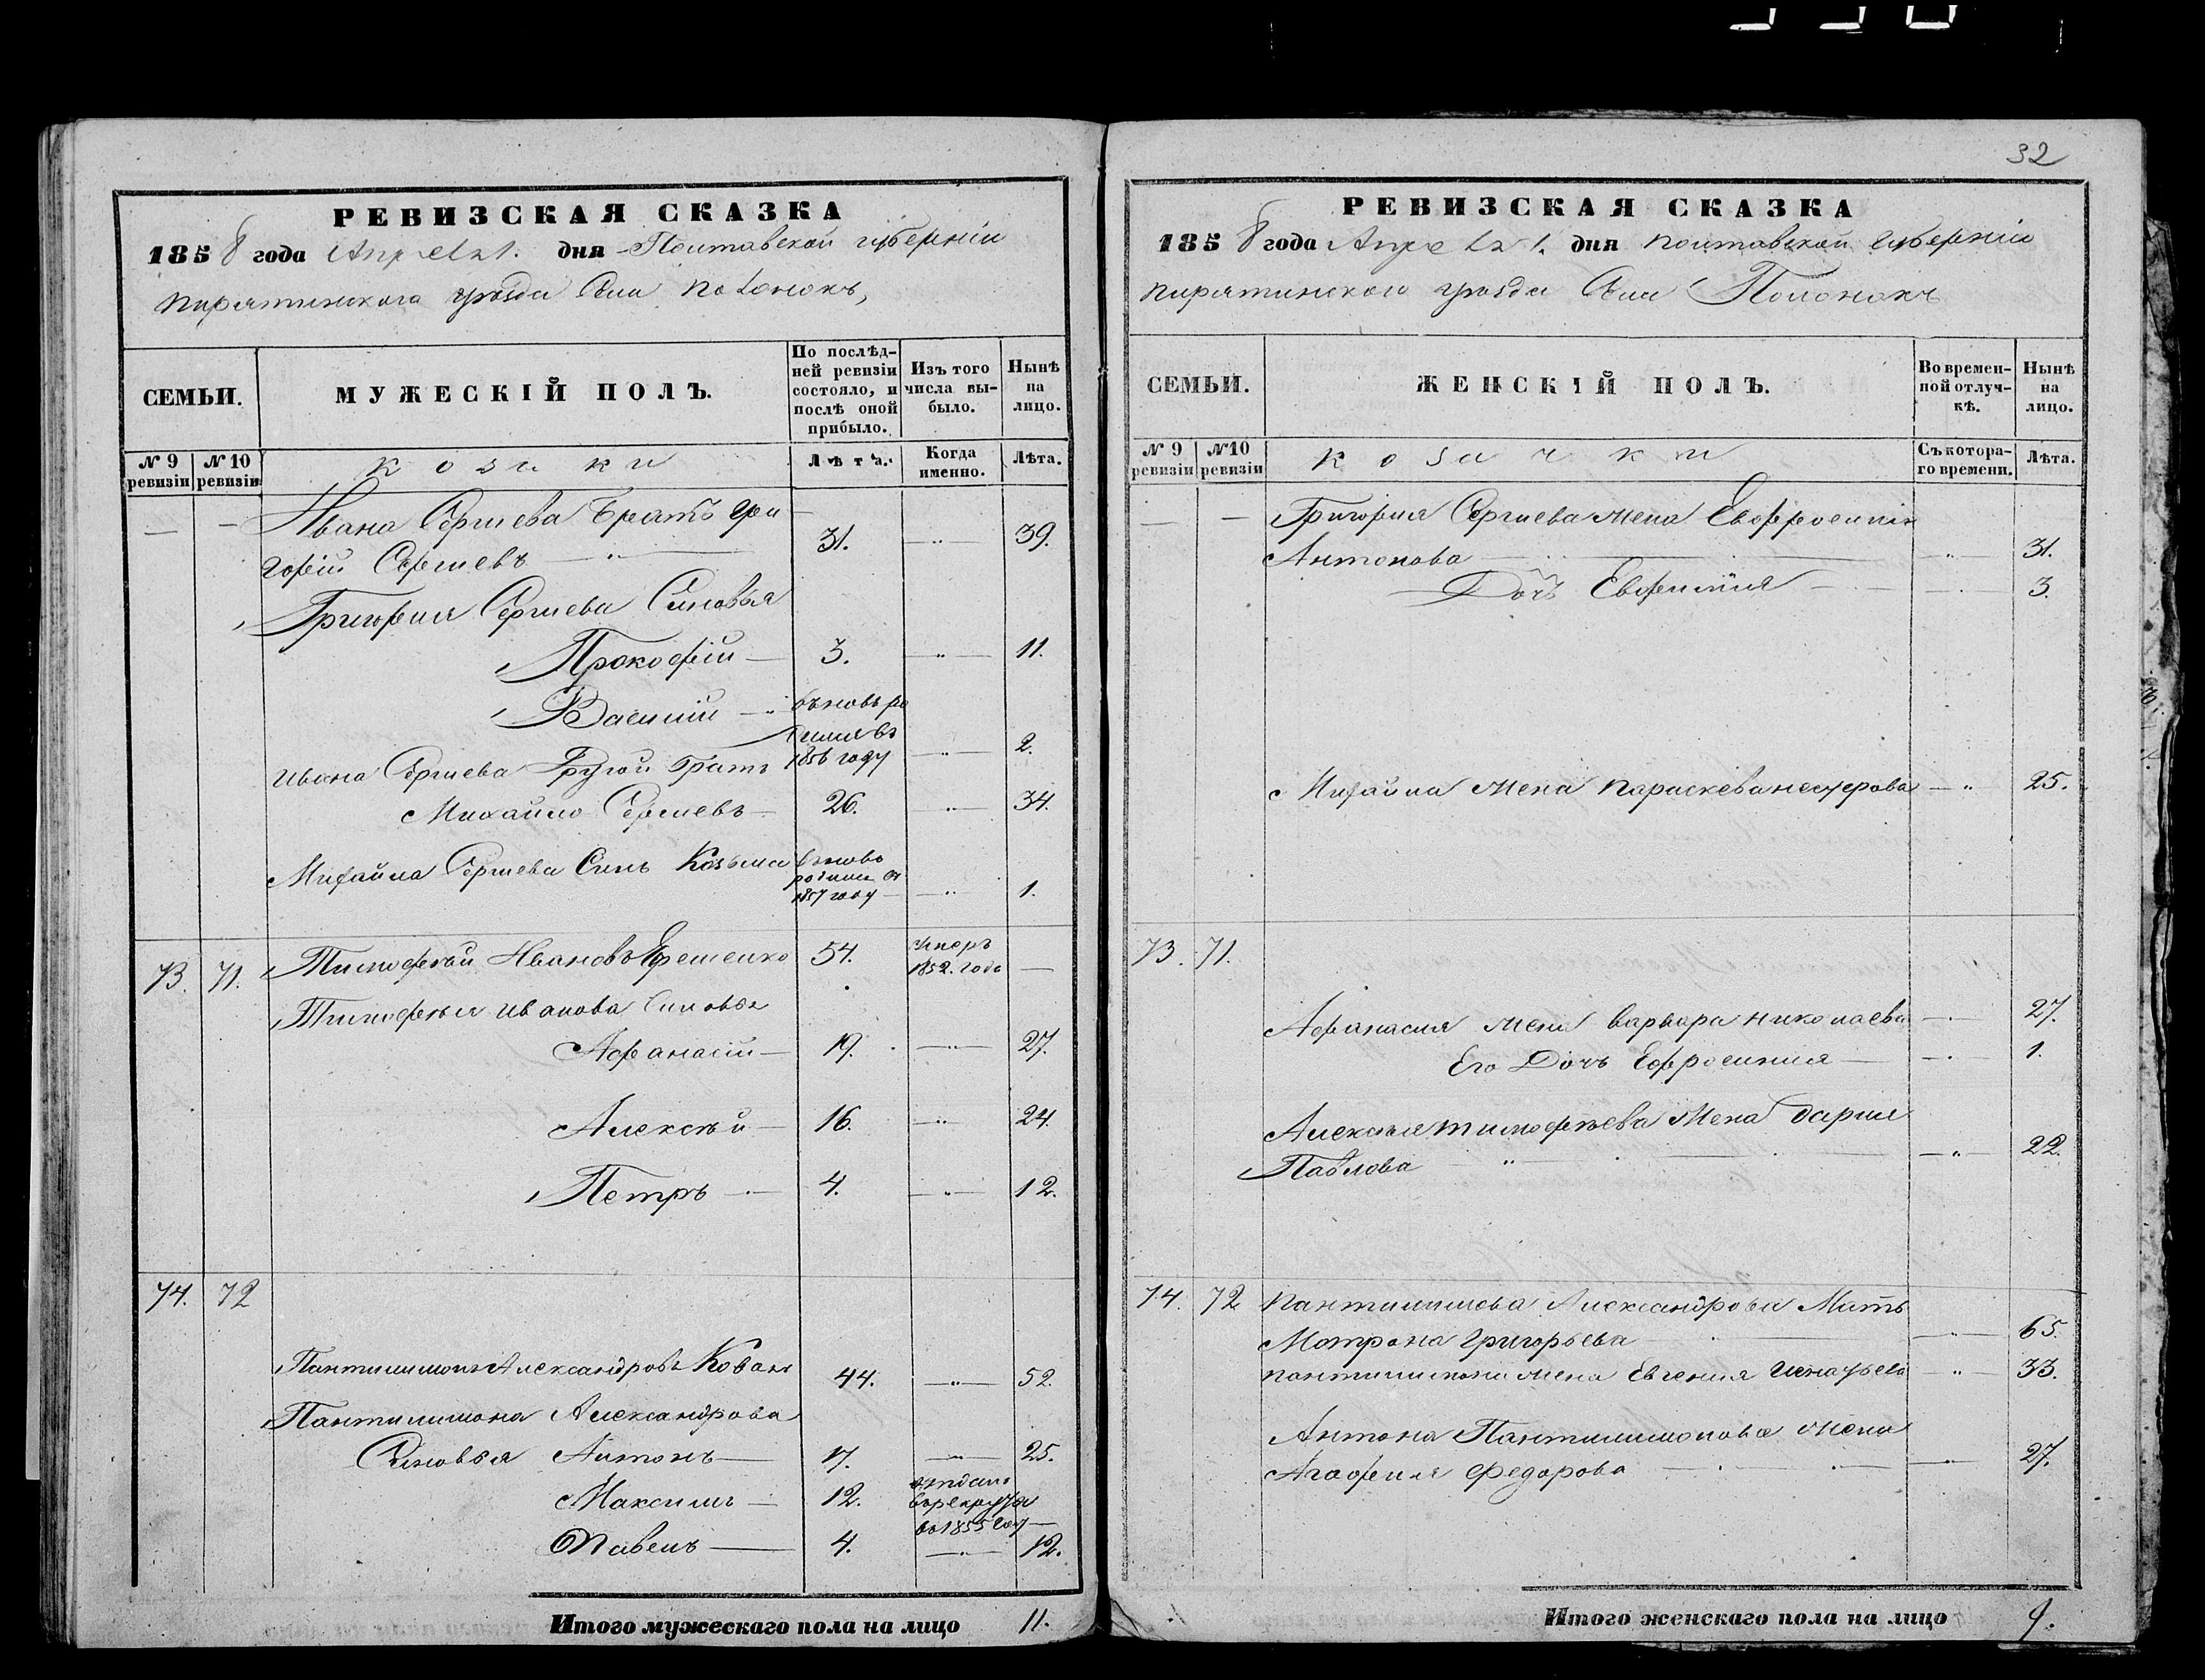 РЕВИЗСКАЯ СКАЗКА
1858 года Апреля 1. дня Полтавской губерніи
Пирятинскаго уѣзда Села Полонокъ,
СЕМЬИ.
МУЖЕСКІЙ ПОЛЪ.
По послѣд-
ней ревизіи
состояло, и
послѣ оной
прибыло.
Изъ того
числа вы-
было.
Нынѣ
на
лицо.
№ 9
ревизіи
№ 10
ревизіи
козаки
Лѣта.
Когда
именно.
Лѣта.
— — Ивана Сергиева Братъ Гри
горій Сергиевъ — 31. — 39.
Григорія Сергиева Синовья
Прокофій — 3. — 11.
Василий — вновь ро
дился въ
1856 году — 2.
Ивана Сергиева Другой Братъ
Михайло Сергиевъ — 26. — 34.
Михайла Сергиева Синъ Козьма вновь
родился въ
1857 году — 1.
73. 71. Тимофѣй Ивановъ Ярешенко 54. умеръ
1852. года —
Тимофѣя Иванова Синовья
Афанасій — 19. — 27.
Алексѣй — 16. — 24.
Петръ — 4. — 12.
74. 72
Пантилимонъ Александровъ Коваль 44. — 52.
Пантилимона Александрова
Синовья Антонъ — 17. — 25.
Максимъ — 12. отданъ
въ рекруты
въ 1855 году —
Павелъ — 4. — 12.
Итого мужескаго пола на лицо 11.
32
РЕВИЗСКАЯ СКАЗКА
1858 года Апреля 1. дня Полтавской Губерніи
Пирятинскаго уѣзда Села Полонокъ
СЕМЬИ.
ЖЕНСКІЙ ПОЛЪ.
Во времен-
ной отлуч-
кѣ.
Нынѣ
на
лицо.
№ 9
ревизіи
№ 10
ревизіи
козачки
Съ котора-
го времени.
Лѣта.
— — Григория Сергиева жена Евфросинія
Антонова — 31.
Дочь Евфимія — 3.
Михайла жена Параскева Нестерова — 25.
73. 71.
Афанасия жена Варвара Николаева — 27.
Его Дочь Ефросиния — 1.
Алексѣя Тимофѣева жена Дария
Павлова — 22.
74. 72 Пантилимона Александрова Мать
Матрона Григорьева — 65.
Пантилимона жена Евгения Игнатьева — 33.
Антона Пантилимонова жена
Агафия Федорова — 27.
Итого женскаго пола на лицо 9.